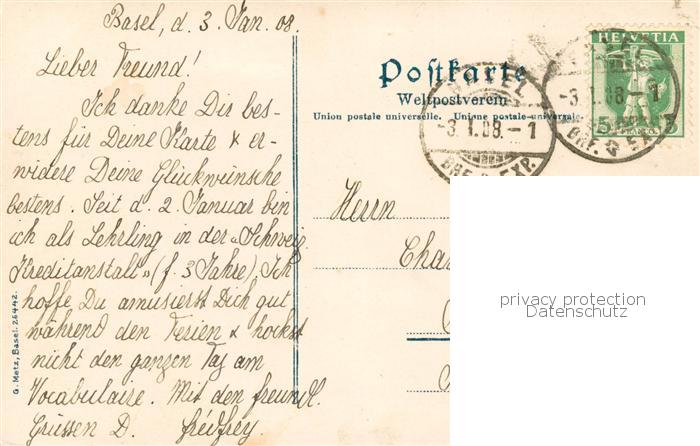 Basel, d. 3. Jan. 08.
Lieber Freund!
Ich danke Dir bes-
tens für Deine Karte & er-
widere Deine Glückwünsche
bestens. Seit d. 2. Januar bin
ich als Lehrling in der „Schweiz.
Kreditanstalt" (f. 3 Jahre). Ich
hoffe Du amüsierst Dich gut
während den Ferien & hockst
nicht den ganzen Tag am
Vocabulaire. Mit den freundl.
Grüssen D.
G. Metz, Basel. 26442.
Postkarte
Weltpostverein
Union postale universelle. Unione postale universale.
HELVETIA
-3.I.08.-1
BRF. EXP.
-3.I.08-1
BRF.
Herrn
privacy protection
Datenschutz